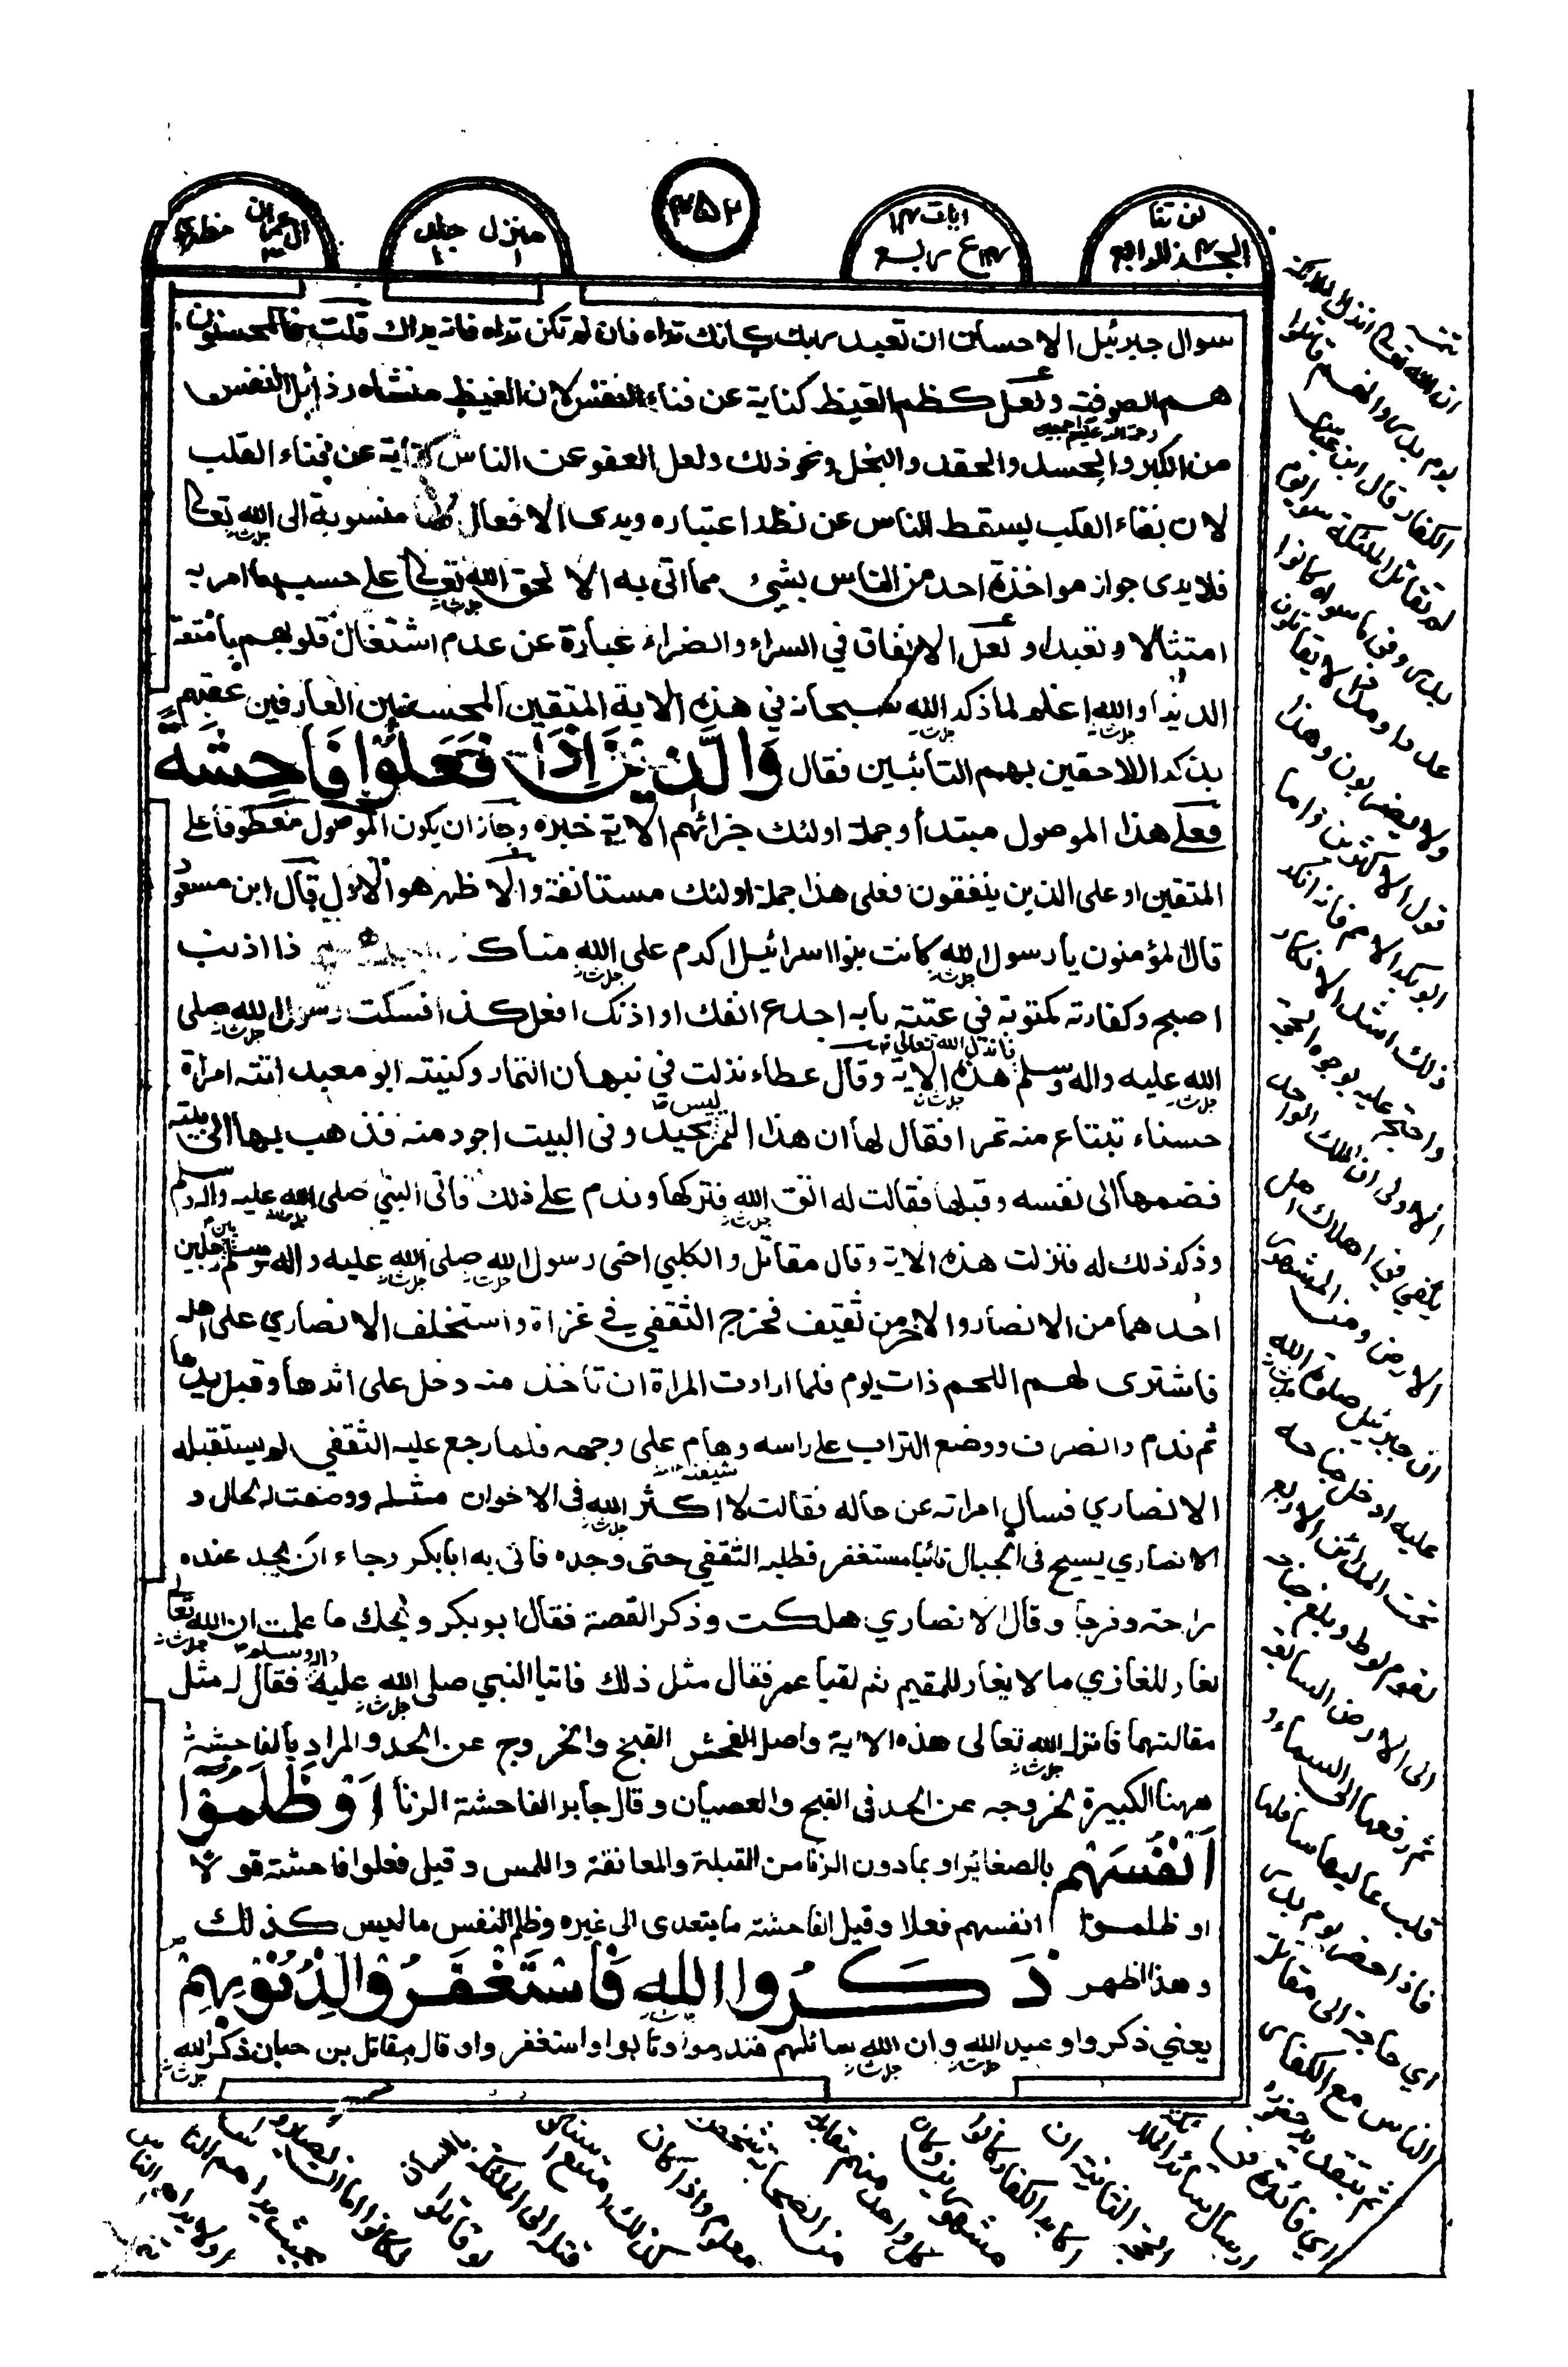 لن تنا
الجزء الرابع
ايات ١٣
١٣ ع ربع
٣٥٢
منزل جلد
١ ١
ال عمران
٣
مظهري
سوال جبرئيل الاحسان ان تعبد ربك كانك تراه فان لم تكن تراه فانه يراك قلت فالمحسنون
هم الصوفية ولعل كظم الغيظ كناية عن فناء النفس لان الغيظ منشاه رذائل النفس
رحمة الله عليهم اجمعين
من الكبر والحسد والحقد والبخل ونحو ذلك ولعل العفو عن الناس كناية عن فناء القلب
لان بفناء القلب يسقط الناس عن نظر اعتباره ويرى الافعال كلها منسوبة الى الله تعالى
فلا يرى جواز مواخذة احد من الناس بشيء مما اتى به الا لحق الله تعالى على حسب ما امر به
امتثالا وتعبدا ولعل الانفاق في السراء والضراء عبارة عن عدم اشتغال قلوبهم بامتعة
الدنيا والله اعلم لما ذكر الله سبحانه في هذه الاية المتقين المحسنين العارفين عقبهم
بذكر اللاحقين بهم التائبين فقال وَالَّذِيْنَ اِذَا فَعَلُوْا فَاحِشَةً
فعلى هذا الموصول مبتدأ وجملة اولئك جزائهم الاية خبره وجاز ان يكون الموصول معطوفا على
المتقين او على الذين ينفقون فعلى هذا جملة اولئك مستانفة والاظهر هو الاول قال ابن مسعود
قال المؤمنون يا رسول الله كانت بنوا اسرائيل اكرم على الله منا ذا اذنب
اصبح وكفارته مكتوبة في عتبة بابه اجدع انفك او اذنك افعل كذا فسكت رسول الله صلى
فانزل الله تعالى
الله عليه واله وسلم هذه الاية وقال عطاء نزلت في نبهان التمار وكنيته ابو معبد اتته امراة
ليس
حسناء تبتاع منه تمرا فقال لها ان هذا التمر بجيد وفى البيت اجود منه فذهب بها الى بيته
فضمها الى نفسه وقبلها فقالت له اتق الله فتركها وندم على ذلك فاتى النبي صلى الله عليه واله وسلم
وذكر ذلك له فنزلت هذه الاية وقال مقاتل والكلبي اخى رسول الله صلى الله عليه واله وسلم بين رجلين
احدهما من الانصار والاخر من ثقيف فخرج الثقفي في غزاة واستخلف الانصاري على اهله
فاشترى لهم اللحم ذات يوم فلما ارادت المراة ان تأخذ منه دخل على اثرها وقبل يدها
ثم ندم وانصرف ووضع التراب على راسه وهام على وجهه فلما رجع عليه الثقفي لم يستقبله
الانصاري فسأل امراته عن حاله فقالت لا اكثر الله فى الاخوان مثله ووصفت له الحال و
الانصاري يسيح فى الجبال تائبا مستغفر فطلبه الثقفي حتى وجده فاتى به ابا بكر رجاء ان يجد عنده
راحة وفرجا وقال الانصاري هلكت وذكر القصة فقال ابو بكر ويحك ما علمت ان الله تعالى
واله وسلم
يغار للغازي ما لا يغار للمقيم ثم لقيا عمر فقال مثل ذلك فاتيا النبي صلى الله عليه فقال له مثل
مقالتهما فانزل الله تعالى هذه الاية واصل الفحش القبح والخروج عن الحد والمراد بالفاحشة
ههنا الكبيرة لخروجه عن الحد فى القبح والعصيان وقال جابر الفاحشة الزنا اَوْ ظَلَمُوْا
اَنْفُسَهُمْ بالصغائر او بما دون الزنا من القبلة والمعانقة واللمس وقيل فعلوا فاحشة قولا
او ظلموا انفسهم فعلا وقيل الفاحشة ما يتعدى الى غيره وظلم النفس ما ليس كذلك
وهذا اظهر ذَكَرُوا اللهَ فَاسْتَغْفَرُوْا لِذُنُوْبِهِمْ
يعني ذكروا وعيد الله وان الله سائلهم فندموا وتابوا واستغفروا وقال مقاتل بن حبان ذكروا الله
ان الله تعالى انزل الملائكة
يوم بدر وانهم قاتلوا
الكفار قال ابن عباس
لم تقاتل الملئكة سوى يوم
بدر وفى ما سواه كانوا
عددا ومددا لا يقاتلون
ولا يضربون وهذا
قول الاكثرين واما
ابو بكر الاصم فانه انكر
ذلك اشد الانكار
واحتج عليه بوجوه الحجة
الاولى ان الملك الواحد
يكفي في اهلاك اهل
الارض ومن المشهور
ان جبرئيل صلوة الله
عليه ادخل جناحه
تحت المدائن الاربع
لقوم لوط وبلغ جناحه
الى الارض السابعة
ثم رفعها الى السماء و
قلب عاليها سافلها
فاذا حضر يوم بدر
اي حاجة الى مقاتلة
الناس مع الكفار
ثم بتقدير حضوره
اي فائدة فى
ارسال سائر الملائكة
الحجة الثانية ان
اكابر الكفار كانوا
مشهورين وكان
كل واحد منهم مقابلة
من الصحابة
معلوم واذا كان